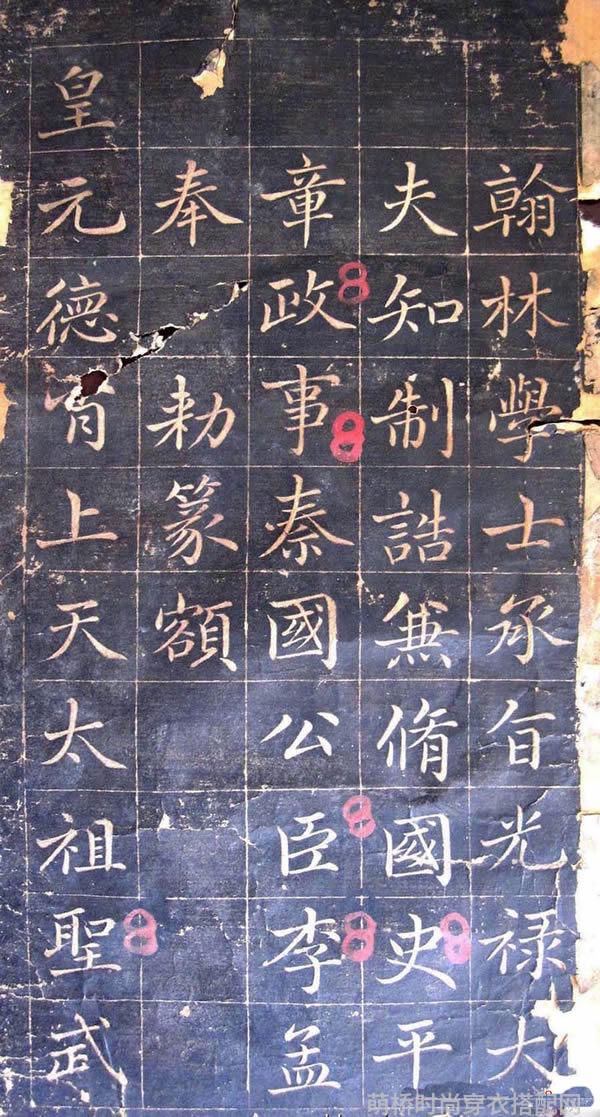 翰林學士承旨光禄大
夫知制誥兼脩國史平
章政事秦國公臣李孟
奉敕篆額
皇元德背上天太祖聖武
萌桥时尚穿衣搭配网